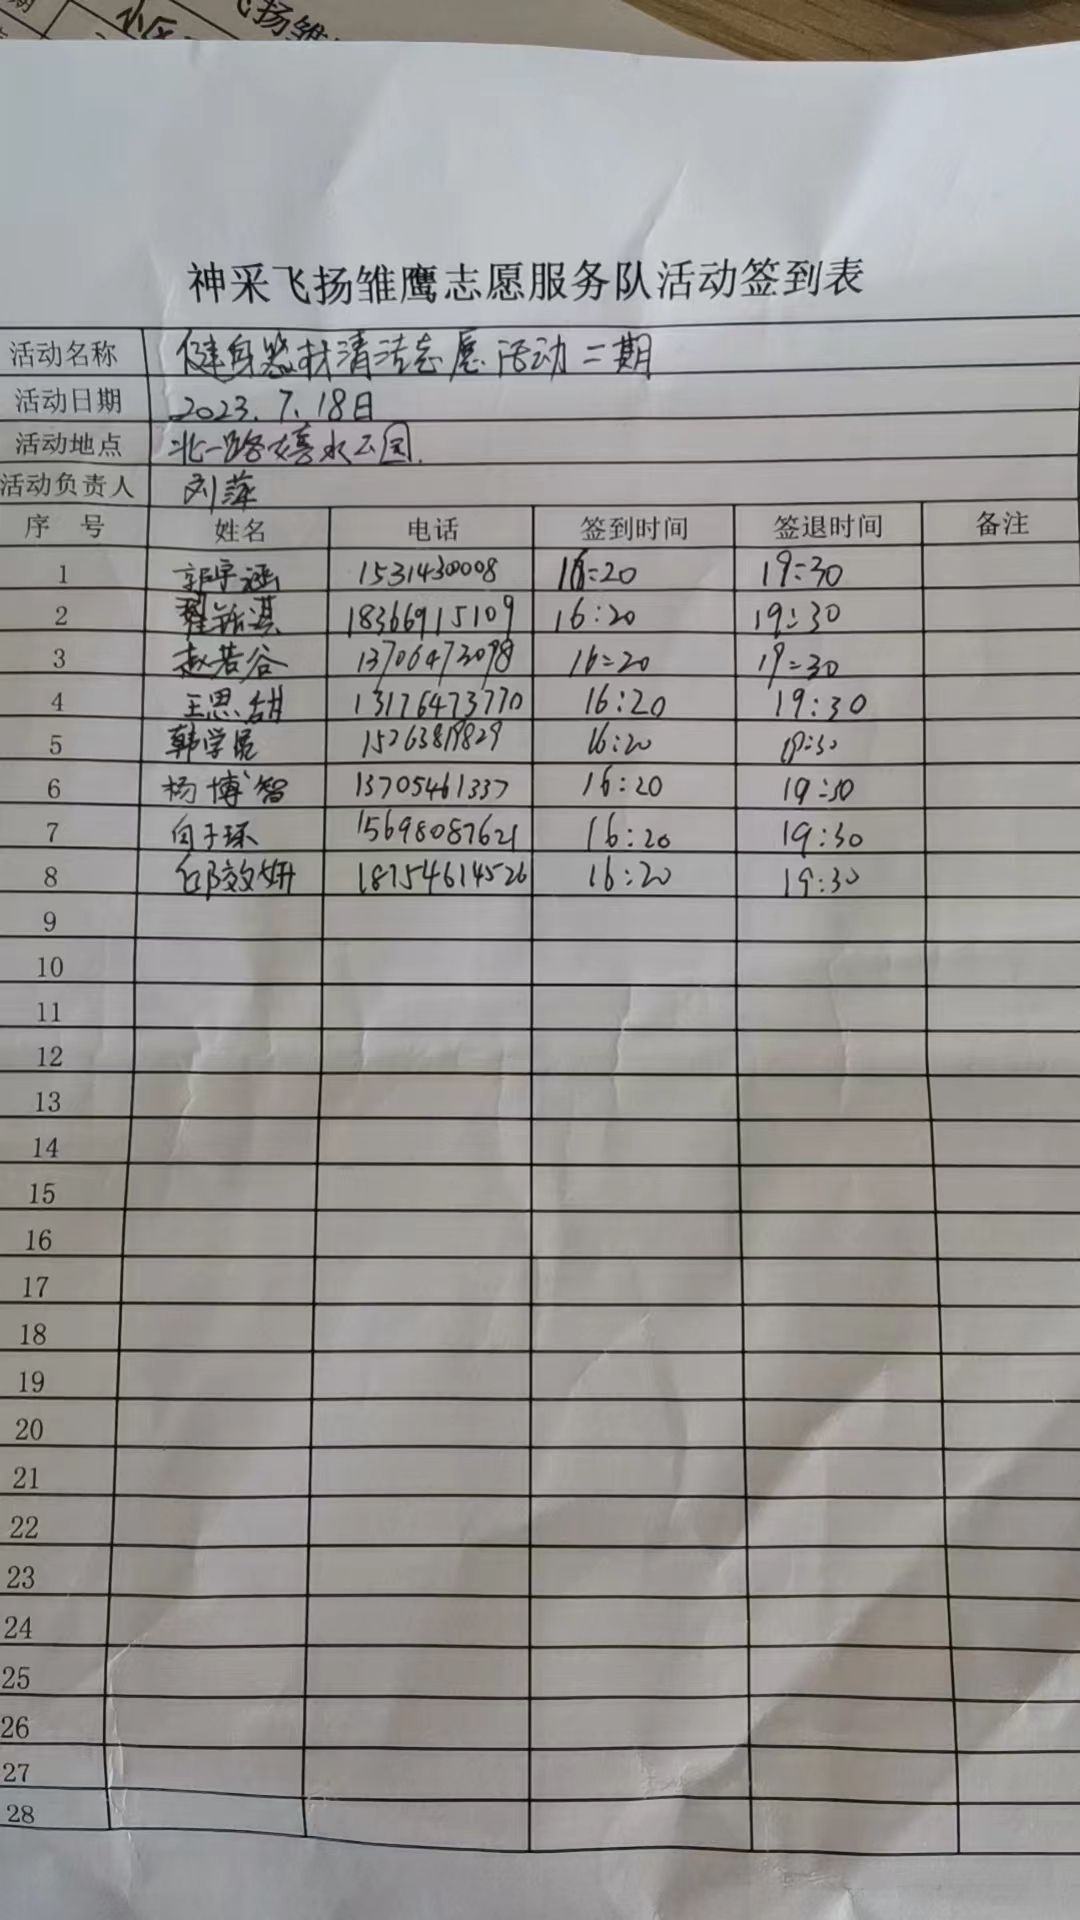 神采飞扬雏鹰志愿服务队活动签到表
活动名称 健身器材清洁志愿活动二期
活动日期 2023.7.18日
活动地点 北一路嬉水公园.
活动负责人 刘萍
序 号 姓名 电话 签到时间 签退时间 备注
1 郭宇涵 1531430008 16:20 19:30
2 翟铱淇 18366915109 16:20 19:30
3 赵若谷 13706473098 16:20 19:30
4 王思甜 13176473770 16:20 19:30
5 韩学 15263819829 16:20 19:30
6 杨博智 13705461337 16:20 19:30
7 向子琢 15698087621 16:20 19:30
8 邰效妍 18754614526 16:20 19:30
9
10
11
12
13
14
15
16
17
18
19
20
21
22
23
24
25
26
27
28